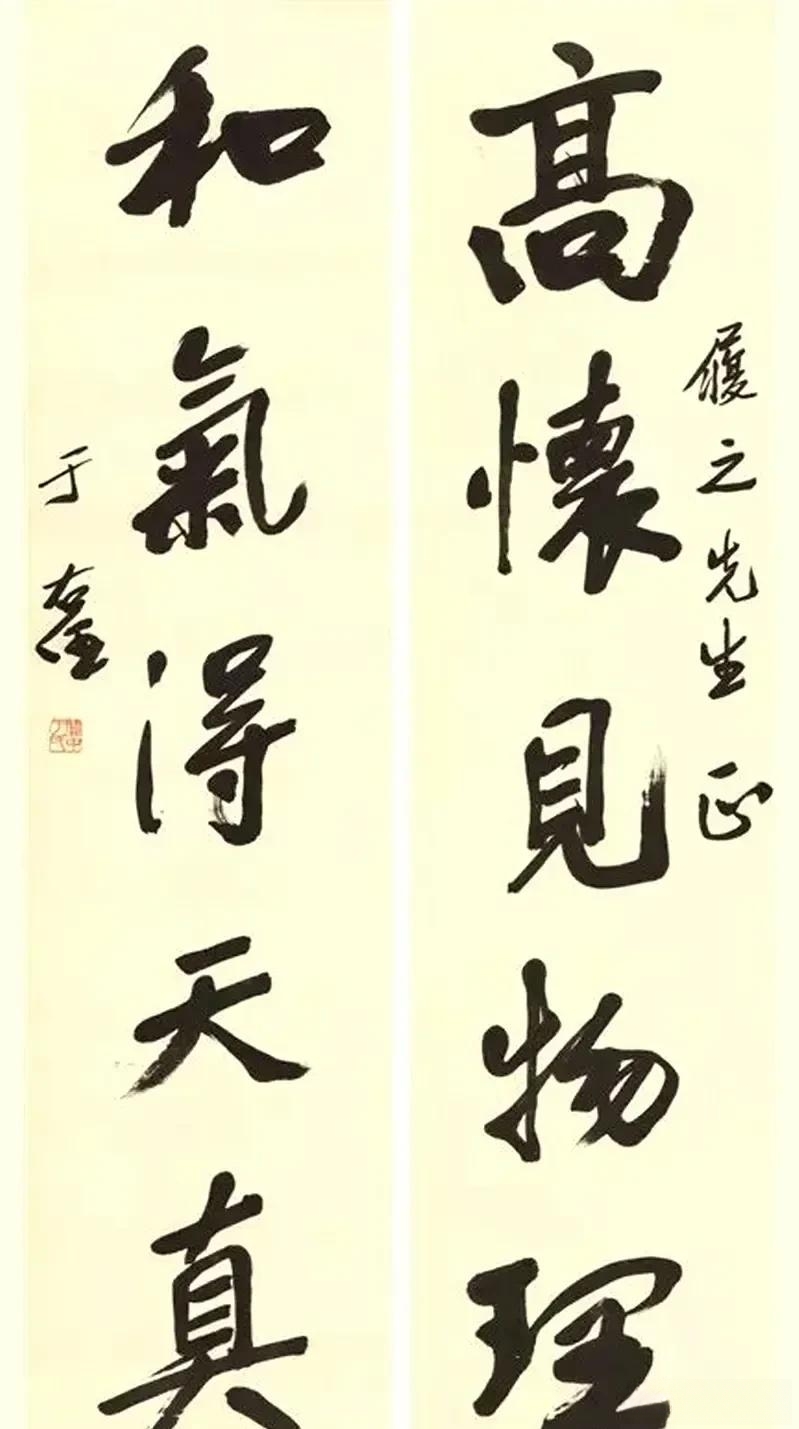 履之先生正
高懷見物理
和氣得天真
于右任